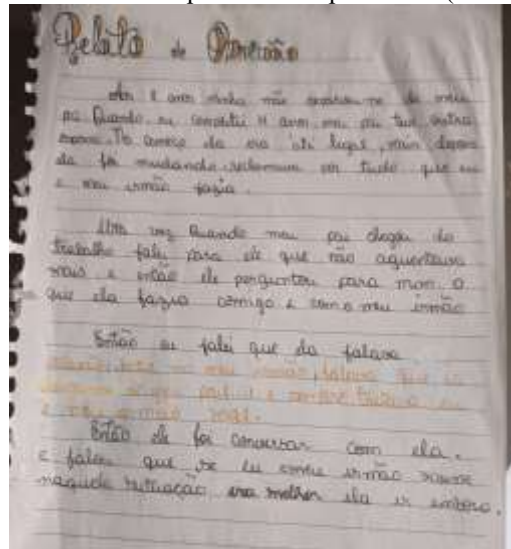 Relato de Opinião
Aos 8 anos minha mãe separou-se do meu
pai Quando eu completei 11 anos meu pai teve outra
esposa. No começo ela era até legal, mais depois
ela foi mudando reclamava em tudo que eu
e meu irmão fazia.
Uma vez Quando meu pai chegou do
trabalho falei para ele que não aguentava
mais e então ele perguntou para mim o
que ela fazia comigo e com o meu irmão
Então eu falei que ela falava
no meu irmão, falava que
e meu irmão
Então ele foi conversar com ela.
e falou que se eu irmão
naquela situação, era melhor ela ir embora.